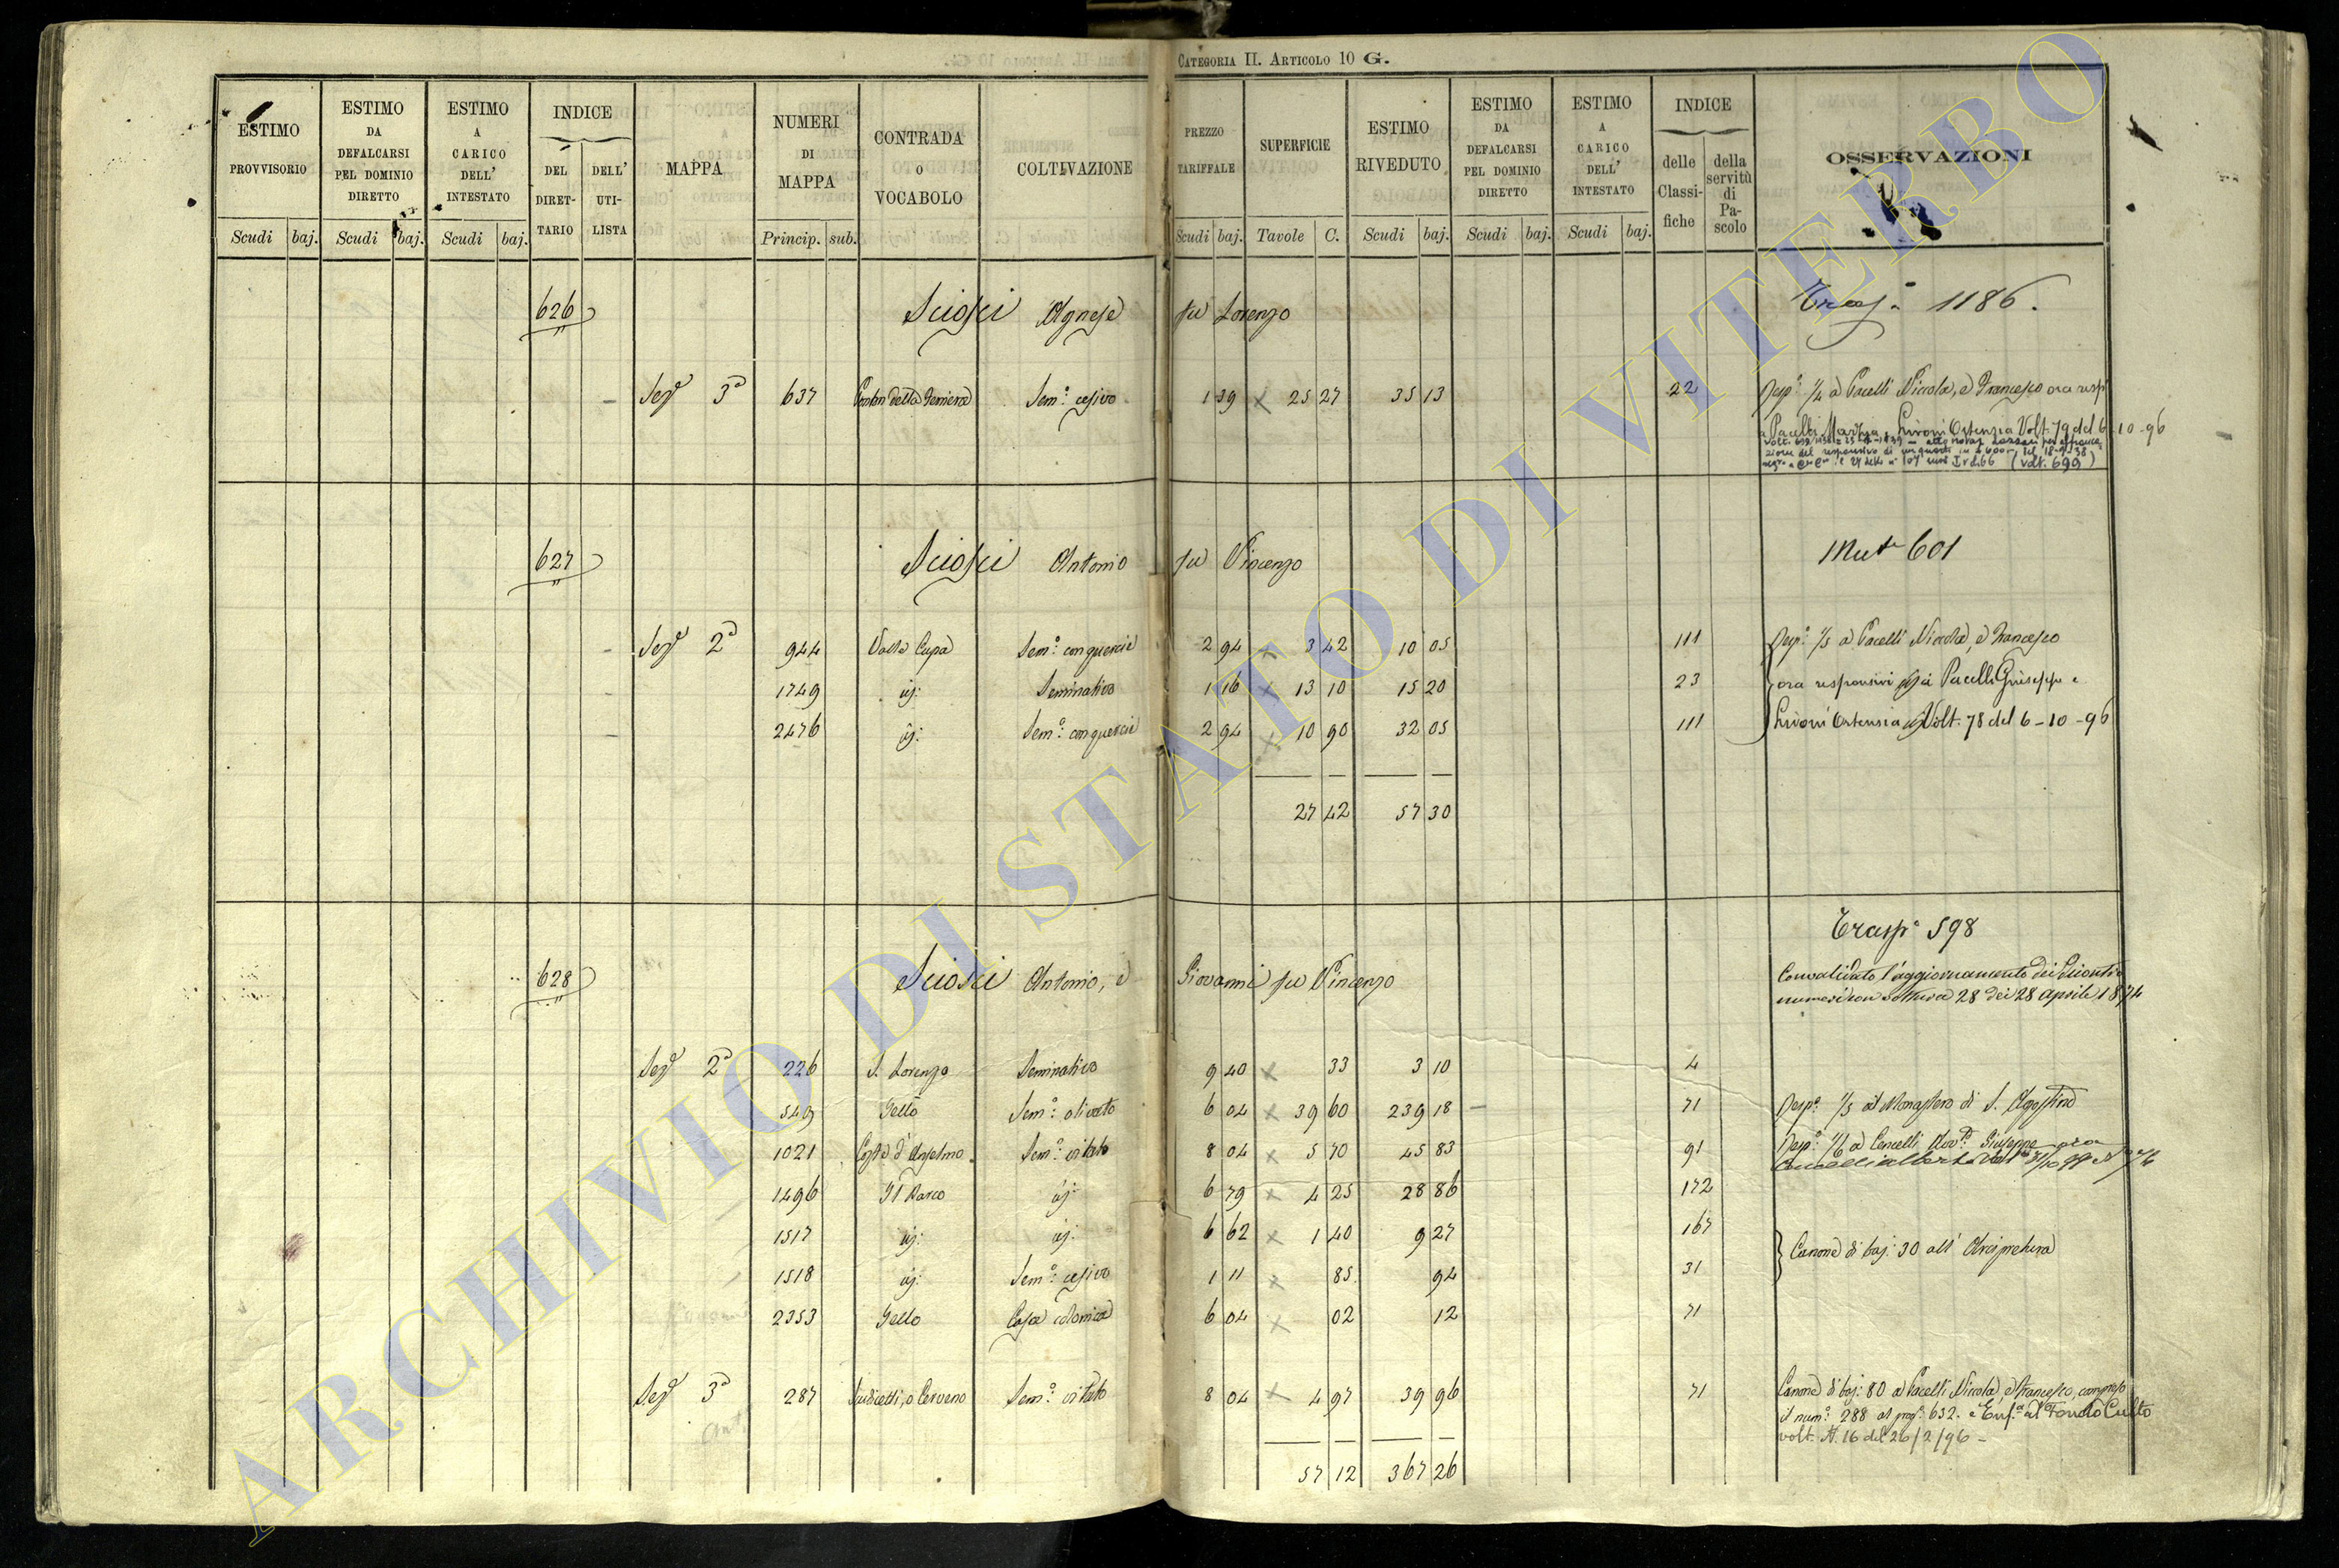 CATEGORIA II. ARTICOLO 10 G.
ESTIMO PROVVISORIO ESTIMO DA DEFALCARSI PEL DOMINIO DIRETTO ESTIMO A CARICO DELL' INTESTATO INDICE DEL DIRET-TARIO DELL' UTI-LISTA MAPPA NUMERI DI MAPPA CONTRADA O VOCABOLO COLTIVAZIONE PREZZO TARIFFALE SUPERFICIE ESTIMO RIVEDUTO ESTIMO DA DEFALCARSI PEL DOMINIO DIRETTO ESTIMO A CARICO DELL' INTESTATO INDICE delle Classi-fiche della servitù di Pa-scolo OSSERVAZIONI
Scudi baj. Scudi baj. Scudi baj. Princip. sub. Scudi baj. Tavole C. Scudi baj. Scudi baj. Scudi baj.
626 Sciosci Agnese fu Lorenzo Trasp.o 1186.
Sez.e 3a 637 della Sem.o cesivo 1 39 25 27 35 13 22 Resp.o 1/4 a Pacelli Niccola, e Francesco ora resp
a Pacelli Livoni Ortensia Volt. 79 del 6-10-96
(volt. 699)
627 Sciosci Antonio fu Vincenzo Mut.e 601
Sez.e 2a 944 Valle Cupa Sem.o con quercie 2 94 3 42 10 05 111 Resp.o 1/5 a Pacelli Niccola, e Francesco
1749 új: Seminativo 1 16 13 10 15 20 23 ora responsivi a Pacelli Giuseppe e
2476 új: Sem.o con quercie 2 94 10 90 32 05 111 Livoni Ortensia Volt. 78 del 6-10-96
27 42 57 30
Trasp.o 598
628 Sciosci Antonio, e Giovanni fu Vincenzo Convalidato l'aggiornamento dei
numeri con voltura 28 dei 28 aprile 1874
Sez.e 2a 226 S. Lorenzo Seminativo 9 40 33 3 10 4
549 Gello Sem.o olivato 6 04 39 60 239 18 71 Resp.o 1/5 al Monastero di S. Agostino
1021 Costa d'Anselmo Sem.o vitato 8 04 5 70 45 83 91 Resp.o 1/6 a Cencelli Giuseppe ora
Cencelli Alberto
1496 Il Barco új: 6 79 4 25 28 86 172
1517 új: új: 6 62 1 40 9 27 167 Canone di baj: 30 all' Arcipretura
1518 új: Sem.o cesivo 1 11 85 94 31
2353 Gello Casa colonica 6 04 02 12 71
Sez.e 3a 287 o Cerveno Sem.o vitato 8 04 4 97 39 96 71 Canone di baj: 80 a Pacelli Niccola, e Francesco, compreso
il num.o 288 al prog.o 632. e Enf.a al Fondo Culto
volt. N. 16 del 26/2/96 -
57 12 367 26
ARCHIVIO DI STATO DI VITERBO